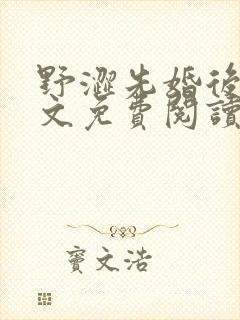 野澀先婚後
文免費閱讀
竇文浩